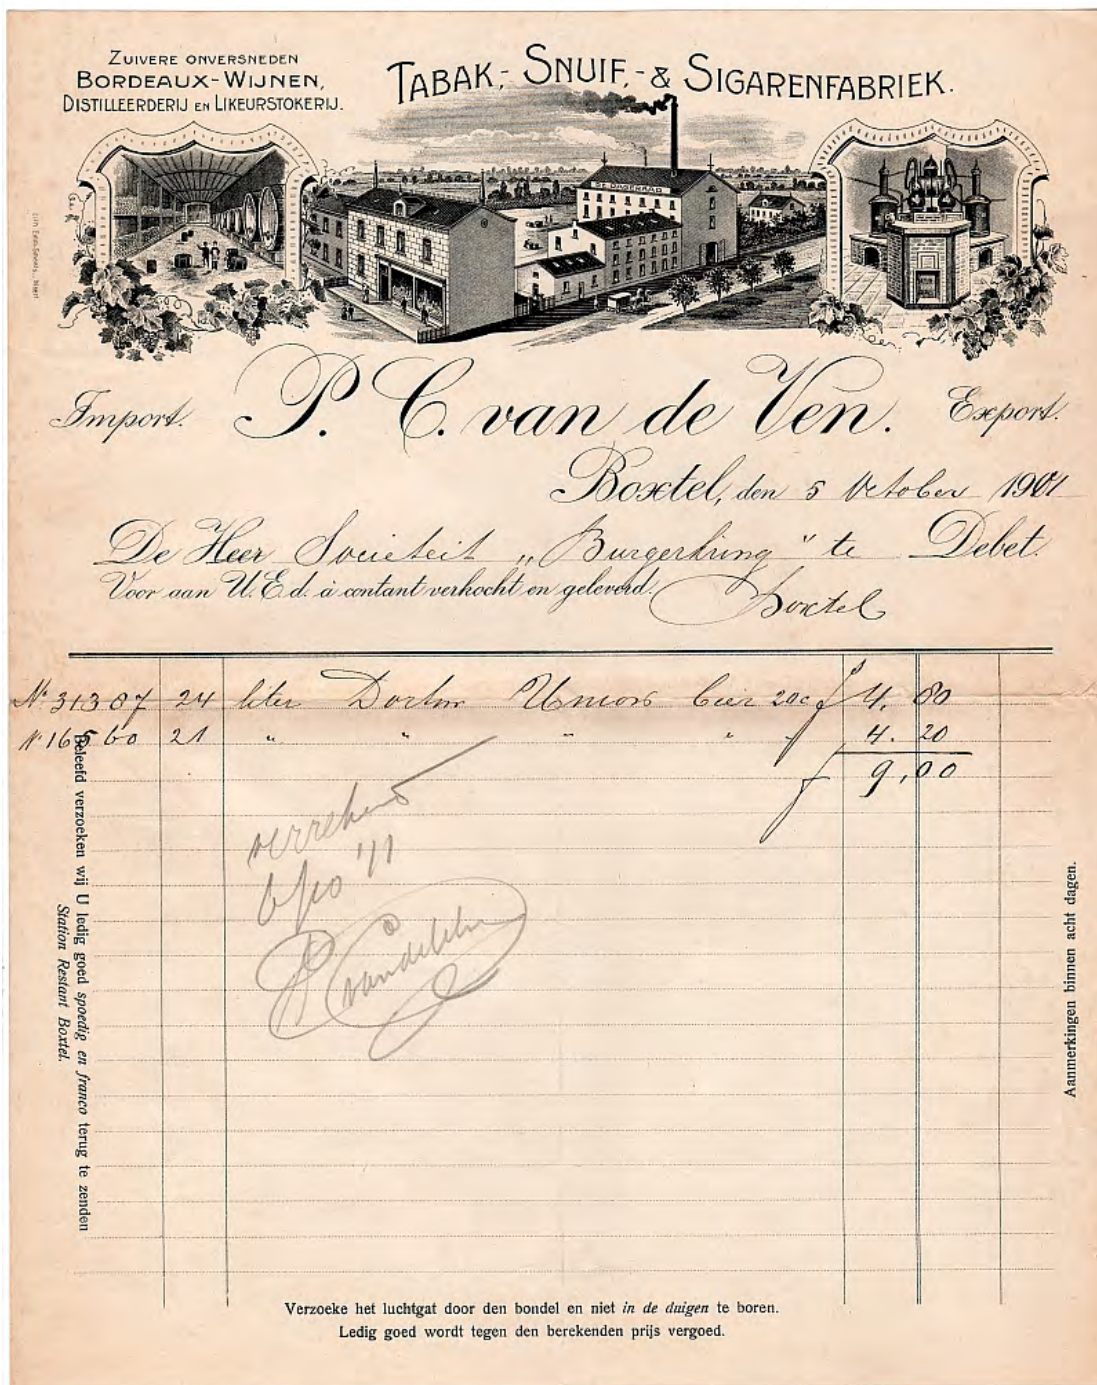 ZUIVERE ONVERSNEDEN
BORDEAUX-WIJNEN,
DISTILLEERDERIJ EN LIKEURSTOKERIJ.
TABAK,- SNUIF,- & SIGARENFABRIEK.
Import. P. C. van de Ven. Export.
Boxtel, den 5 October 1901
De Heer Societeit „Burgerkring" te Debet.
Voor aan U.Ed. à contant verkocht en geleverd. Boxtel
No 31387 24 liter Dortm Union bier 20c f 4.80
No 16560 21 " " " " " 4.20
f 9,00
verrekend
'11
Beleefd verzoeken wij U ledig goed spoedig en franco terug te zenden
Station Restant Boxtel.
Aanmerkingen binnen acht dagen.
Verzoeke het luchtgat door den bondel en niet in de duigen te boren.
Ledig goed wordt tegen den berekenden prijs vergoed.